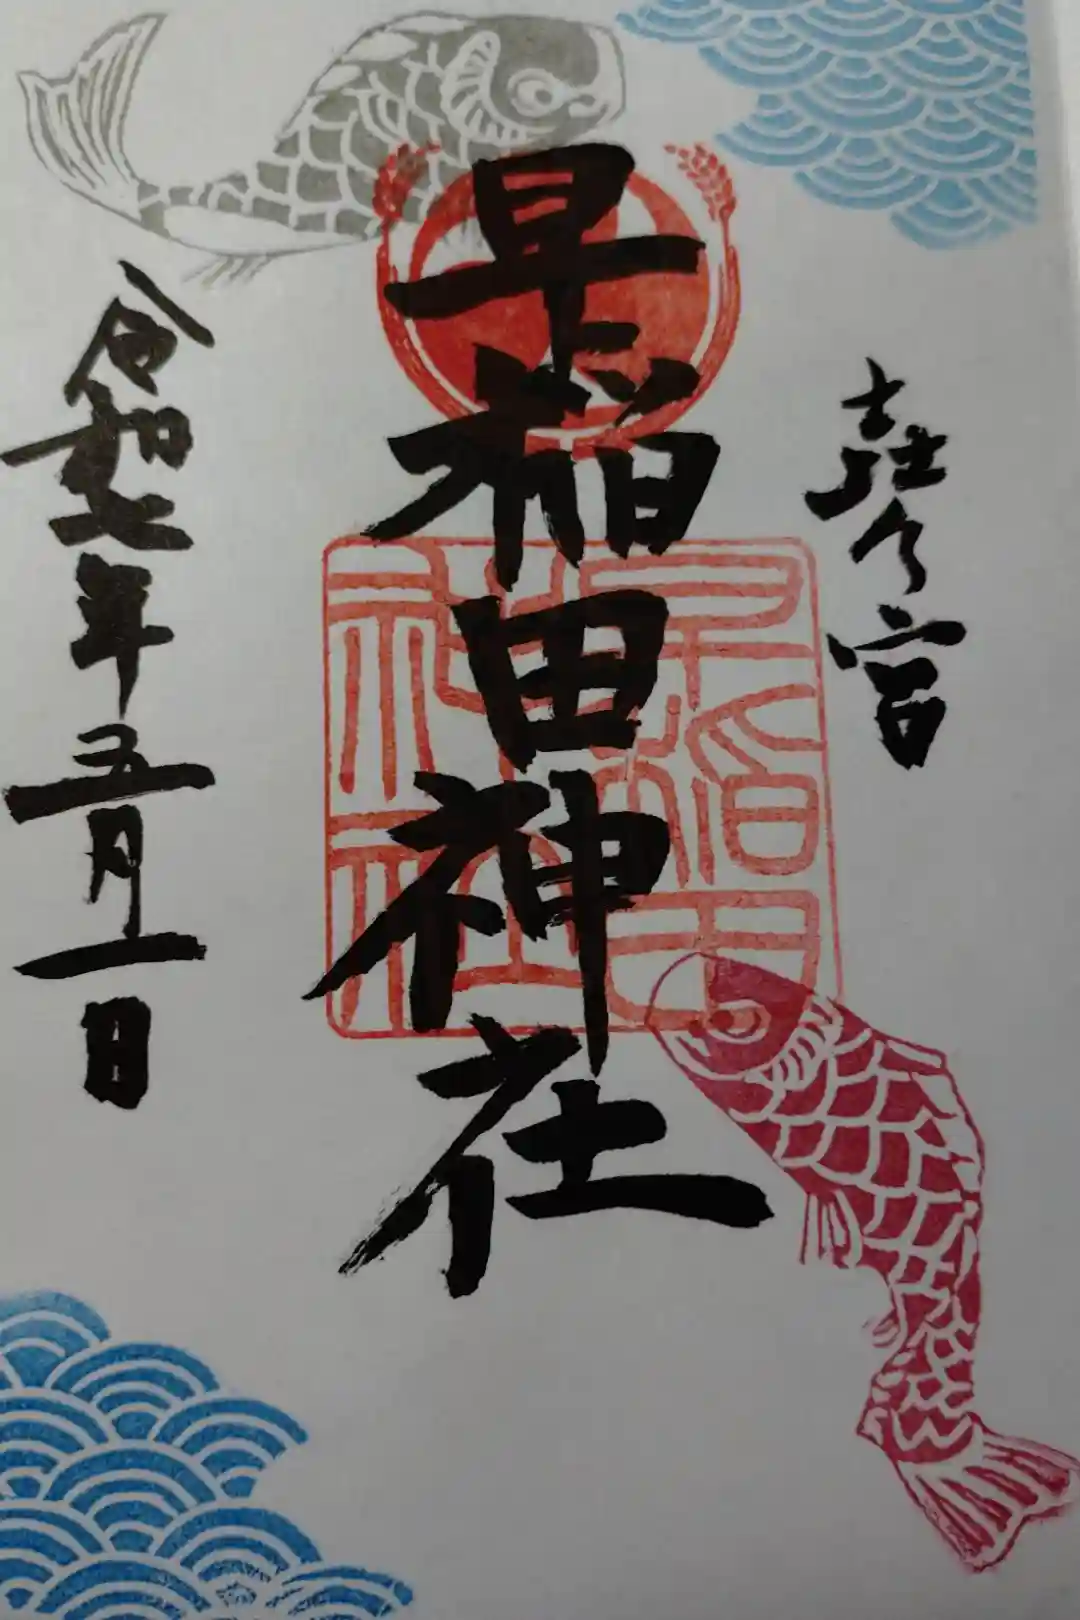 宮
早稲田神社
早稲田
神社
令和七年五月一日